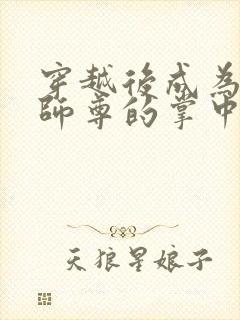 穿越後成為
師尊的掌中
天狼星娘子